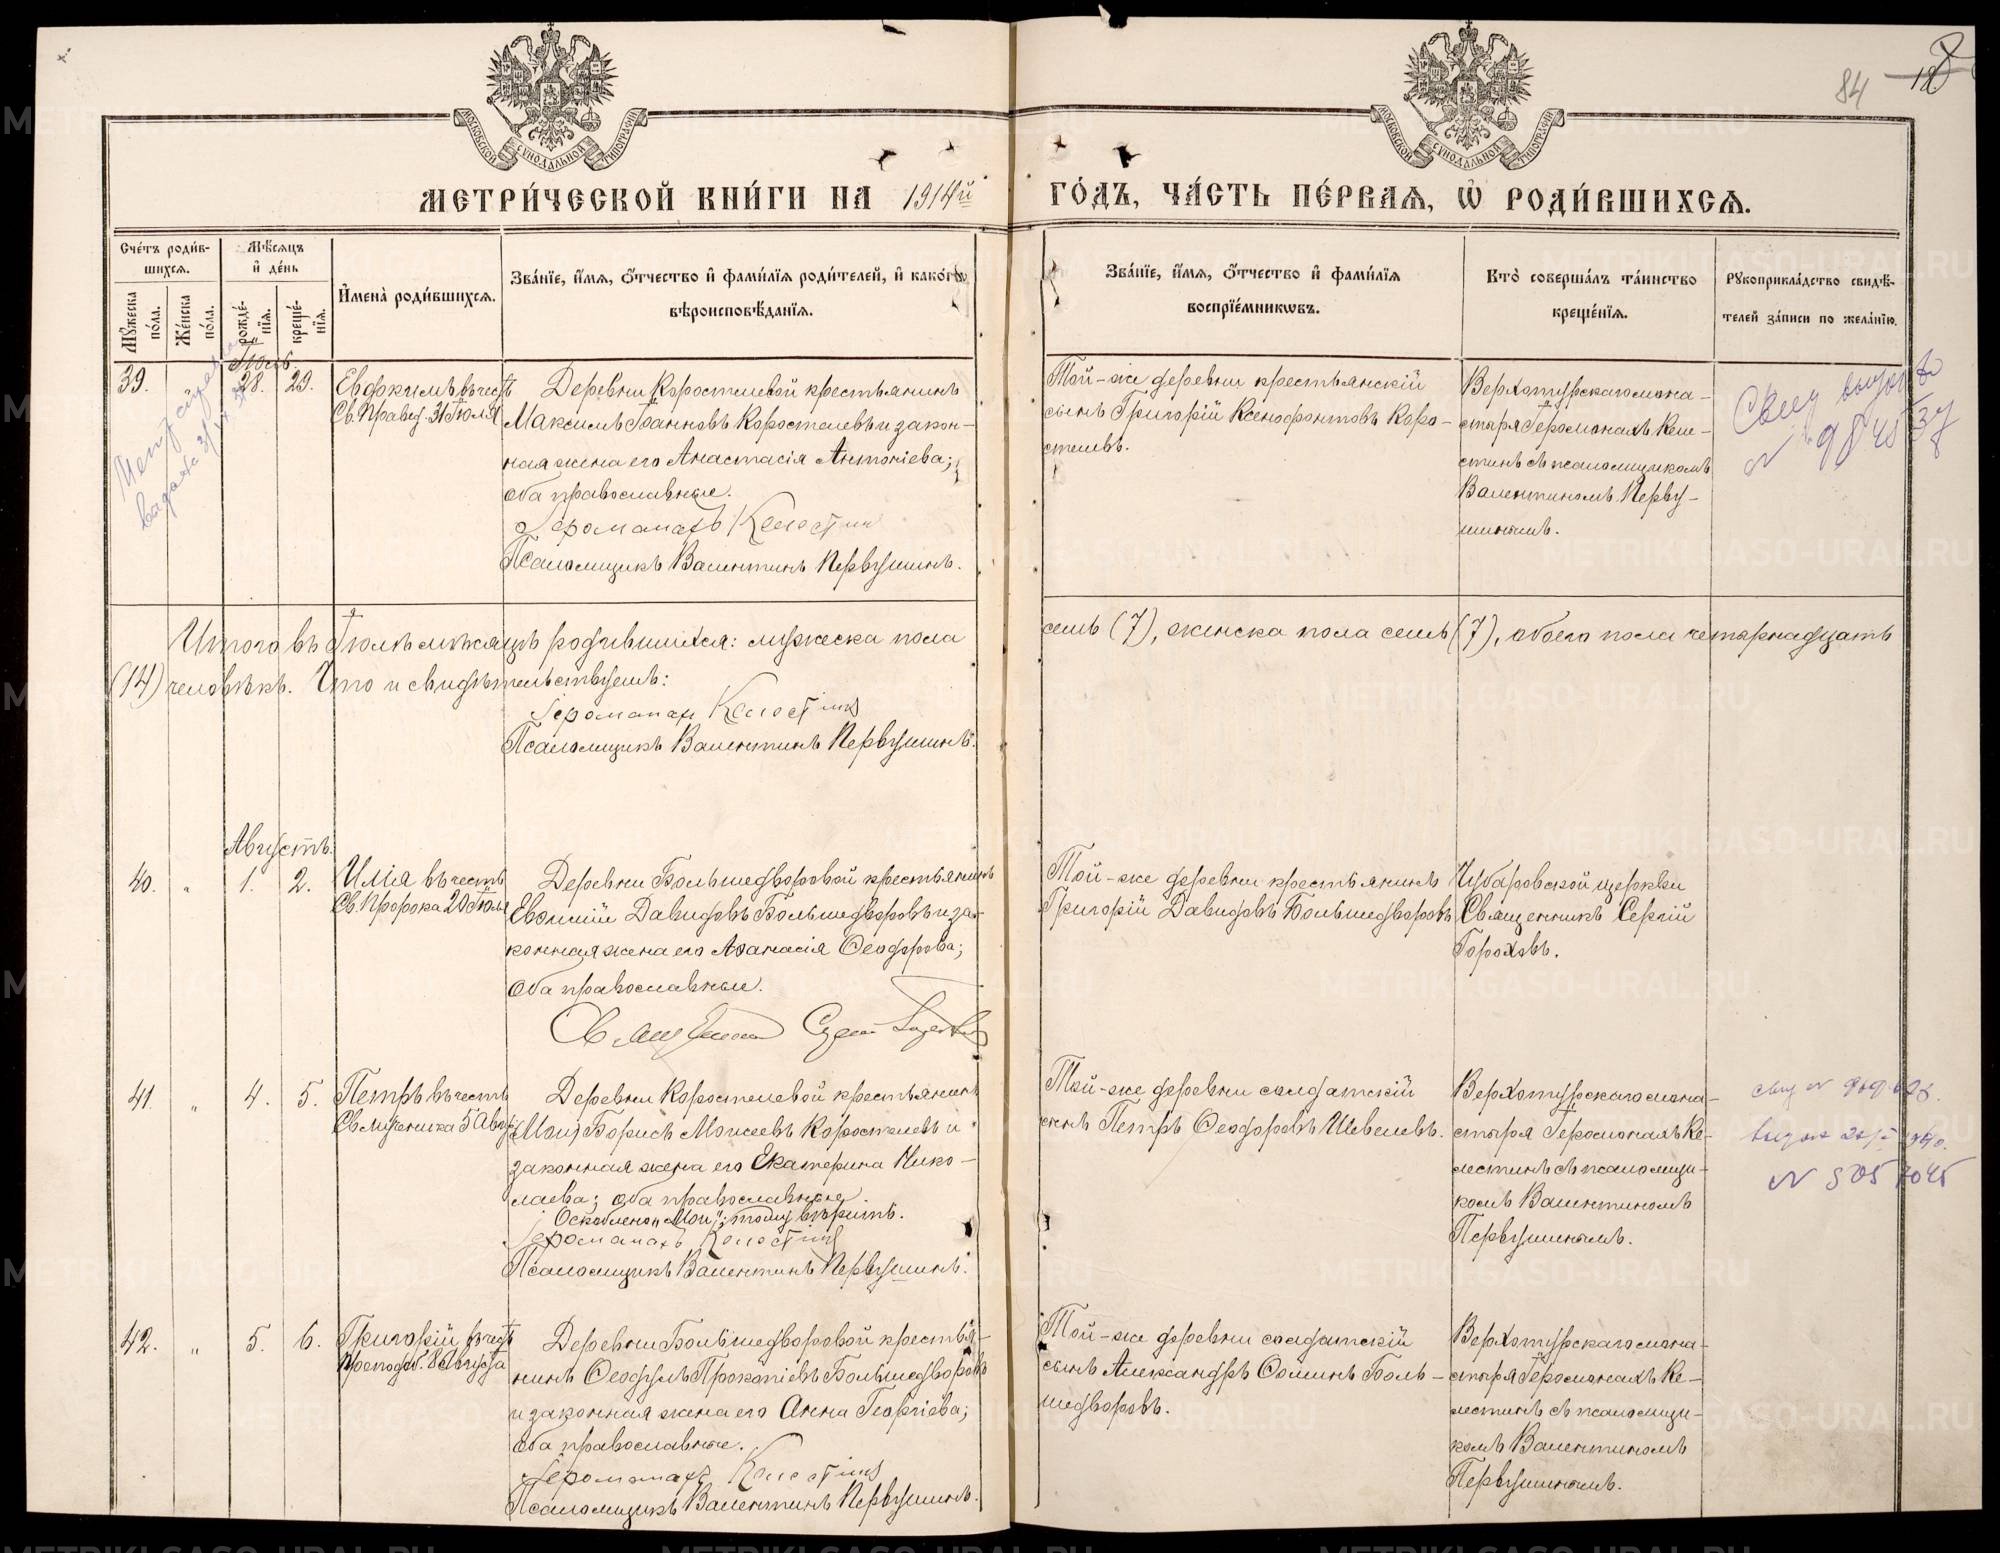 84
МОСКОВСКОЙ СУНОДАЛЬНОЙ ТИПОГРАФІИ
МОСКОВСКОЙ СУНОДАЛЬНОЙ ТИПОГРАФІИ
МЕТРИ́ЧЕСКОЙ КНИ́ГИ НА 1914й ГО́ДЪ, ЧА́СТЬ ПЕ́РВАѦ, Ѡ РОДИ́ВШИХСѦ.
Сче́тъ роди́в-
шихсѧ.
Мꙋжеска по́ла.
Же́нска по́ла.
Мѣ́сѧцъ
и҆ де́нь
рожде́-
нїѧ.
креще́-
нїѧ.
И҆мена̀ роди́вшихсѧ.
Зва́нїе, и҆́мѧ, ѻ҆́тчество и҆ фами́лїѧ роди́телей, и҆ како́гѡ
вѣроисповѣ́данїѧ.
Зва́нїе, и҆́мѧ, ѻ҆́тчество и҆ фами́лїѧ
воспрїе́мникѡвъ.
Кто̀ соверша́лъ та́инство
креще́нїѧ.
Рꙋкоприкла́дство свидѣ́-
телей за́писи по жела́нїю.
Іюль.
39.
28.
29.
Евдокимъ въ честь
Св. Правед. 31 Іюля
Деревни Коростелевой крестьянинъ
Максимъ Іоанновъ Коростелевъ и закон-
ная жена его Анастасія Антоніева;
оба православные.
Іеромонахъ Келестин
Псаломщикъ Валентинъ Первушинъ.
Той-же деревни крестьянскій
сынъ Григорій Ксенофонтовъ Коро-
стелевъ.
Верхотурскаго мона-
стыря Іеромонахъ Келе-
стинъ съ псаломщикомъ
Валентиномъ Перву-
шинымъ.
Итого въ Іюлѣ мѣсяцѣ родившихся: мужеска пола семь (7), женска пола семь (7), обоего пола четырнадцать
(14) человѣкъ. Что и свидѣтельствуемъ:
Іеромонах Келестинъ
Псаломщикъ Валентинъ Первушинъ.
Августъ.
40.
"
1.
2.
Илія въ честь
Св. Пророка 20 Іюля
Деревни Большедворовой крестьянинъ
Евѳимій Давидовъ Большедворовъ и за-
конная жена его Аѳанасія Ѳеодорова;
оба православные.
Священникъ Сергій Гороховъ
Той-же деревни крестьянинъ
Григорій Давидовъ Большедворовъ
Чубаровской церкви
Священникъ Сергій
Гороховъ.
41.
"
4.
5.
Петръ въ честь
Св. мученика 5 Авг.
Деревни Коростелевой крестьянинъ
Борисъ Моисеевъ Коростелевъ и
законная жена его Екатерина Нико-
лаева; оба православные.
Оскоблено; тому вѣрить.
Іеромонахъ Келестинъ
Псаломщикъ Валентинъ Первушинъ.
Той-же деревни солдатскій
сынъ Петръ Ѳеодоровъ Шевелевъ.
Верхотурскаго мона-
стыря Іеромонахъ Ке-
лестинъ съ псаломщи-
комъ Валентиномъ
Первушинымъ.
42.
"
5.
6.
Григорій въ честь
преподоб. 8 Августа
Деревни Большедворовой крестья-
нинъ Ѳеодулъ Прокопіевъ Большедворовъ
и законная жена его Анна Георгіева;
оба православные.
Іеромонахъ Келестинъ
Псаломщикъ Валентинъ Первушинъ.
Той-же деревни солдатскій
сынъ Александръ Ѳоминъ Боль-
шедворовъ.
Верхотурскаго мона-
стыря Іеромонахъ Ке-
лестинъ съ псаломщи-
комъ Валентиномъ
Первушинымъ.
METRIKI.GASO-URAL.RU